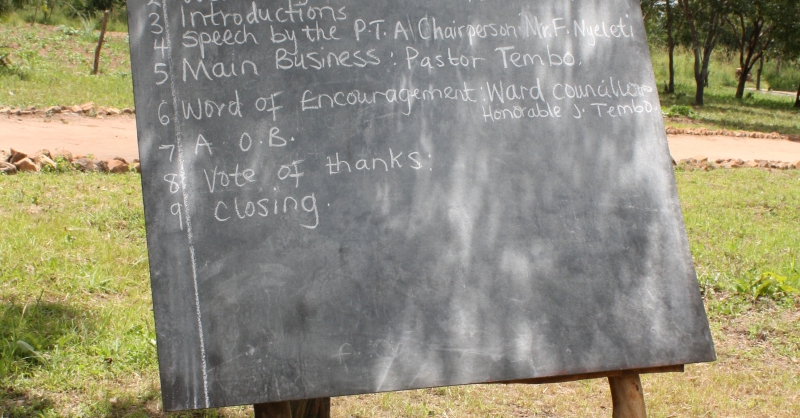 3 Introductions
4 speech by the P.T.A Chairperson Mr. F. Nyeleti
5 Main Business : Pastor Tembo.
6 Word of Encouragement : Ward councillor
Honorable J. Tembo.
7 A. O. B.
8 Vote of thanks:
9 closing.